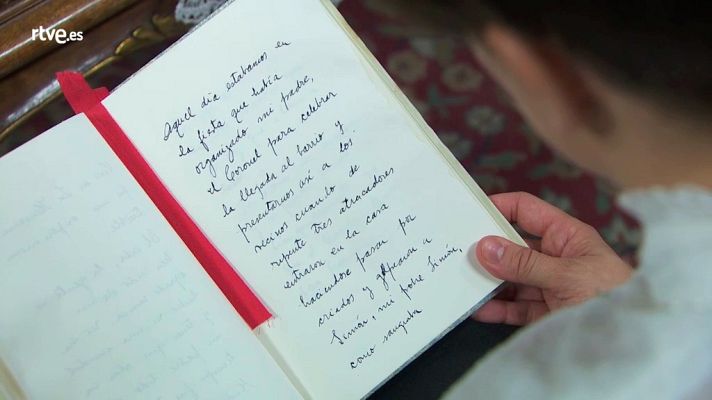 rtve.es
Aquel día estabamos en
la fiesta que había
organizado mi padre,
el Coronel para celebrar
la llegada al barrio y
presentarnos así a los
vecinos cuando de
repente tres atracadores
entraron en la casa
haciendose pasar por
criados y golpearon a
Simón, mi pobre Simón,
como sangraba